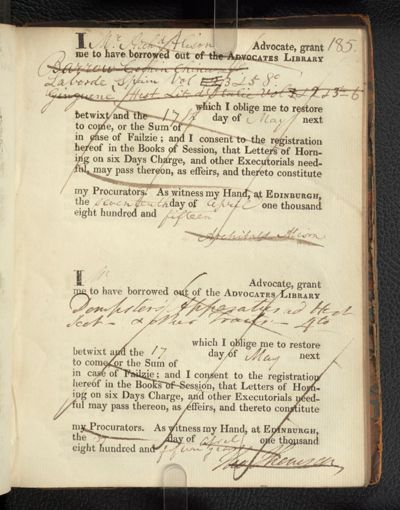 185.
I Mr. Archd. Alison Advocate, grant
me to have borrowed out of the ADVOCATES LIBRARY
Barrow Cochin China
Laborde Spain Vol 3 & 5 8o
Ginguene Hist Lit d'Italie Vol 5 6
which I oblige me to restore
betwixt and the 17 day of May next
to come, or the Sum of
in case of Failzie; and I consent to the registration
hereof in the Books of Session, that Letters of Horn-
ing on six Days Charge, and other Executorials need-
ful, may pass thereon, as effeirs, and thereto constitute
my Procurators. As witness my Hand, at EDINBURGH,
the seventeenth day of April one thousand
eight hundred and fifteen
Archibald Alison
I Advocate, grant
me to have borrowed out of the ADVOCATES LIBRARY
Dempsters Apparatus ad Hist
Scot & other Tracts 4to
which I oblige me to restore
betwixt and the 17 day of May next
to come, or the Sum of
in case of Failzie; and I consent to the registration
hereof in the Books of Session, that Letters of Horn-
ing on six Days Charge, and other Executorials need-
ful may pass thereon, as effeirs, and thereto constitute
my Procurators. As witness my Hand, at EDINBURGH,
the day of April one thousand
eight hundred and fifteen years
Thomson